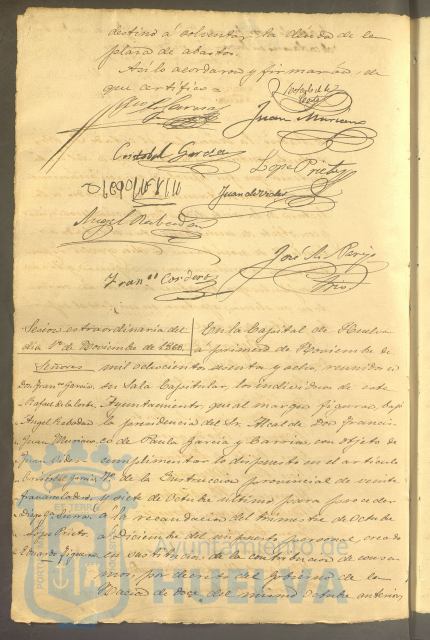 destino á solventar la deuda de la
plaza de abastos.
Así lo acordaron y firmarán, de
que certifico =
Juan Muriano
Cristobal Garcia
Lope Prieto
Juan de Vides
Angel Rabadan
José Mª Parejo
Srio
Franco Cordero
Sesion extraordinaria del
dia 1º de Noviembre de 1868.
Señores
Don Franco Garcia
Rafael de la Corte
Angel Rabadan
Juan Muriano
Juan Vides
Cristobal Garcia
Franco Cordero
Diego
Lope Prieto
Eduardo Figueroa
En la Capital de Huelva
á primero de Noviembre de
mil ochocientos sesenta y ocho, reunidos en
su Sala Capitular, los individuos de este
Ayuntamiento, que al margen figuran, bajo
la presidencia del Sr. Alcalde don Francis-
co de Paula Garcia y Barrias, con objeto de
cumplimentar lo dispuesto en el articulo
4º de la Instruccion provincial de veinte
y siete de Octubre último para proceder
á la recaudacion del trimestre de Octubre
á Diciembre del impuesto personal creado
en sustitucion de la contribucion de consu-
mos, por decreto del Gobierno de la
Nacion de doce del mismo Octubre anterior,
Ayuntamiento de
HUELVA